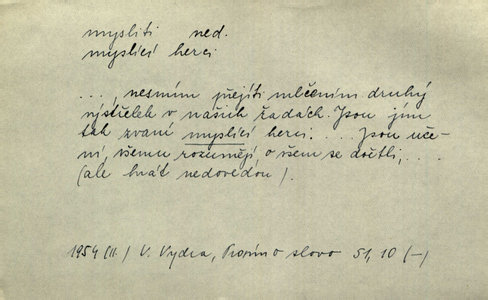 mysliti ned.
myslící herci
..., nesmím přejíti mlčením druhý
výstřelek v našich řadách. Jsou jím
tak zvaní myslící herci. ... Jsou uče-
ní, všemu rozumějí, o všem se dočtli, ...
(ale hrát nedovedou).
1954 (II.) V. Vydra, Prosím o slovo 51, 10 (–)